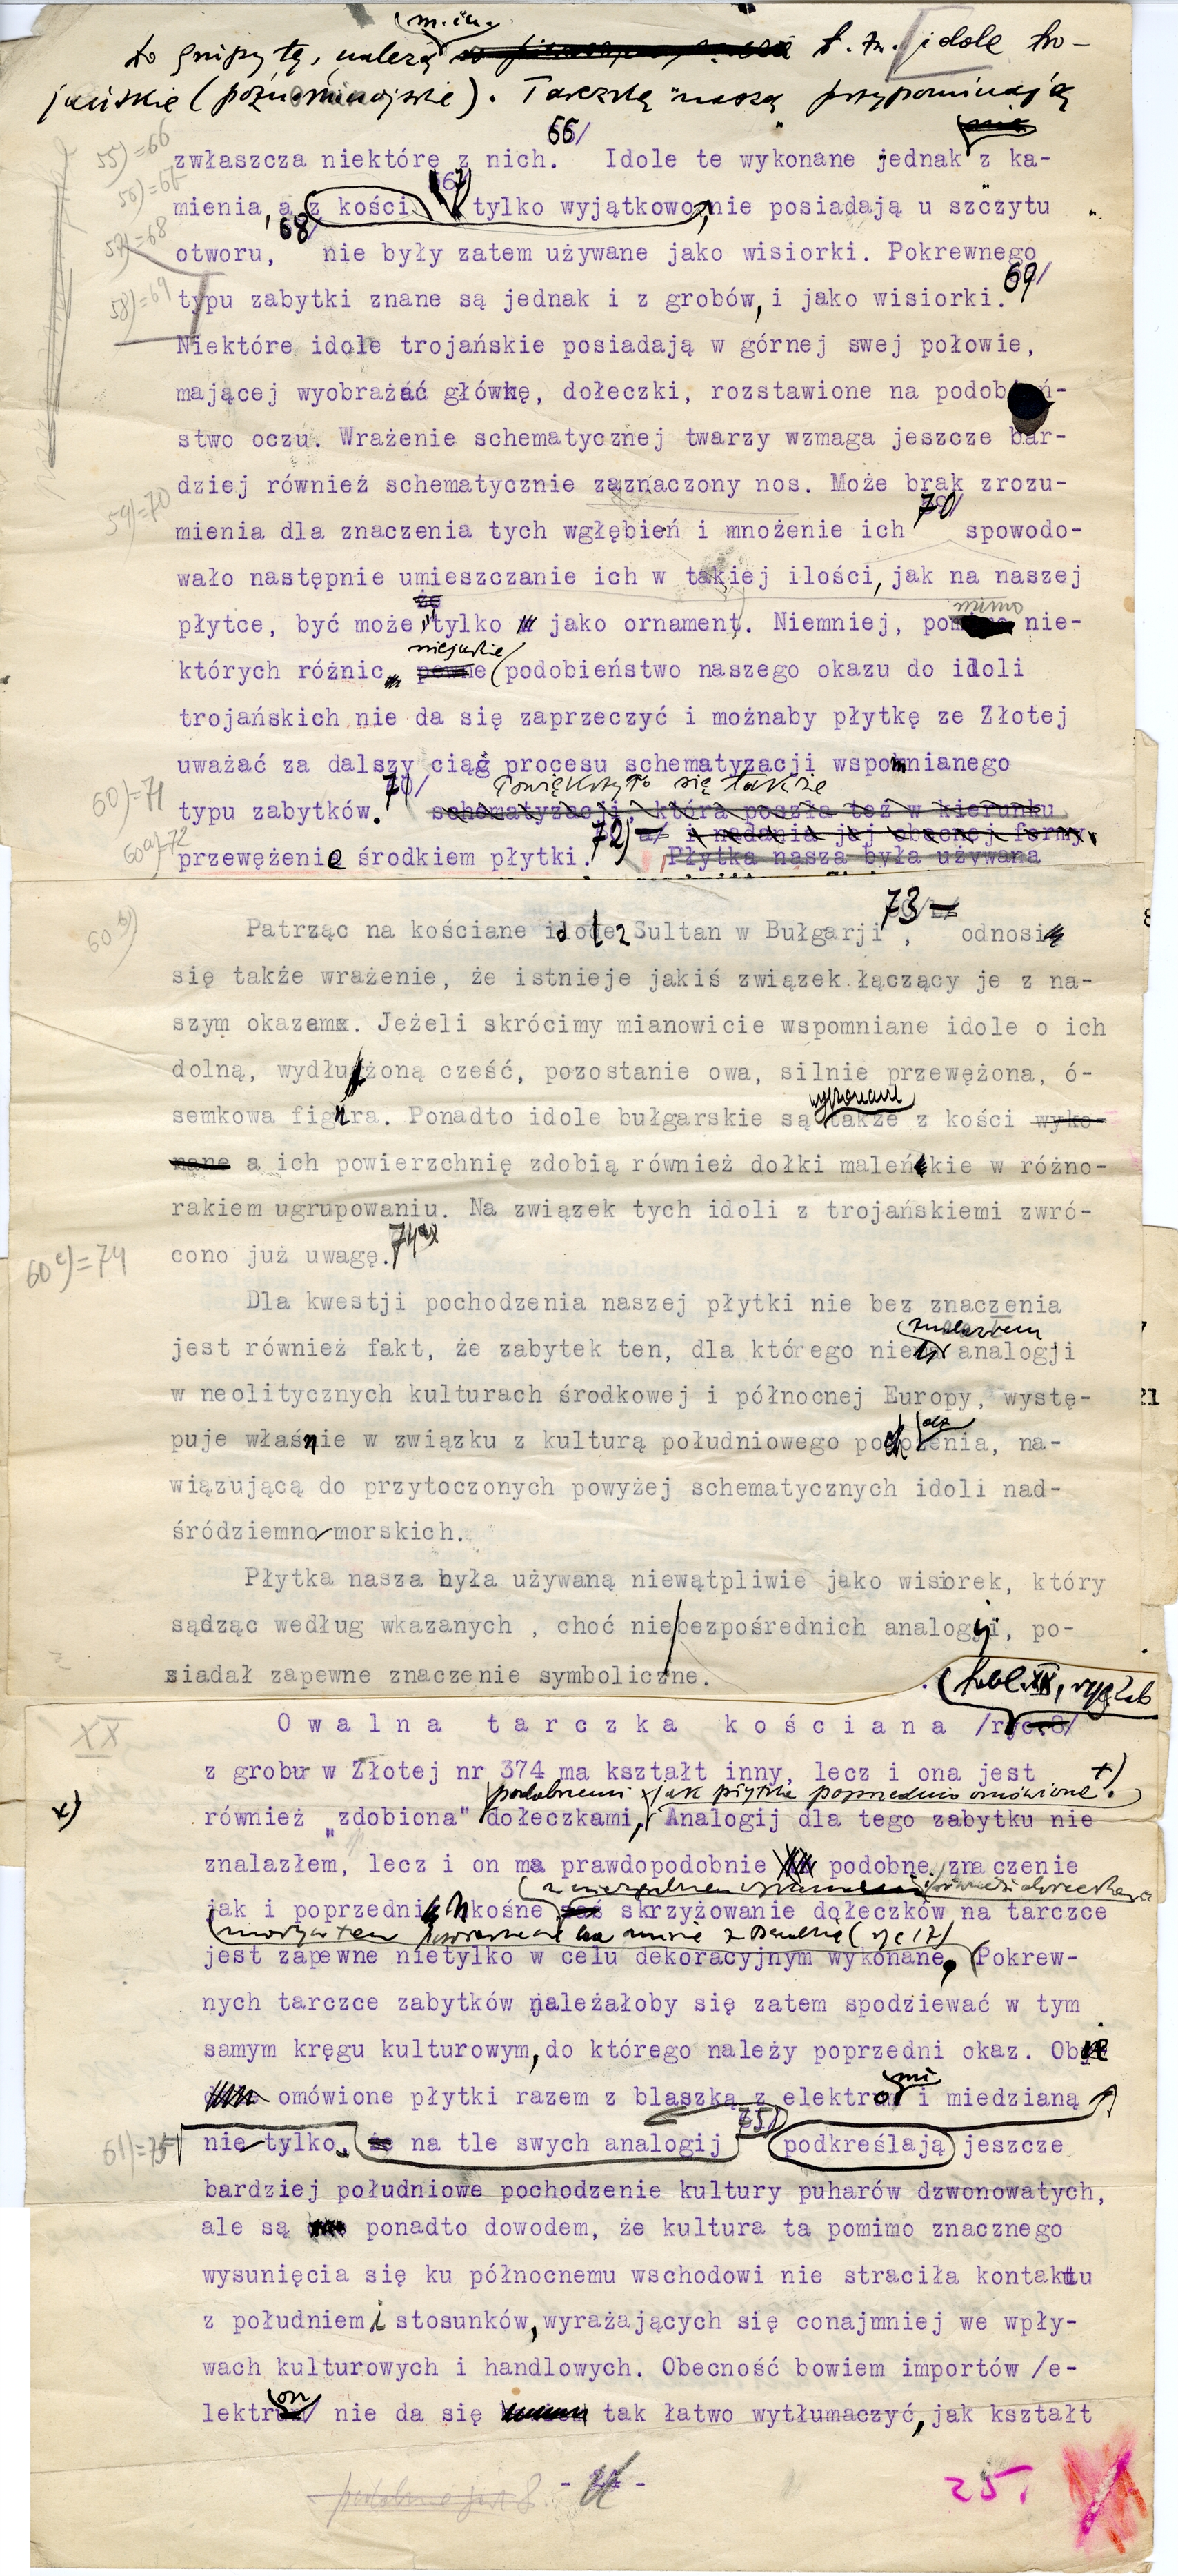 m. in.
to grupy tę, należą t. zw. idole tro-
jańskie (późnominojskie). Tarczkę "naszą" przypominają
55) = 66
66/
zwłaszcza niektóre z nich. Idole te wykonane jednak z ka-
56) = 67
67/
mienia, a z kości tylko wyjątkowo, nie posiadają u szczytu
57) = 68
68/
otworu, nie były zatem używane jako wisiorki. Pokrewnego
58) = 69
69/
typu zabytki znane są jednak i z grobów, i jako wisiorki.
Niektóre idole trojańskie posiadają w górnej swej połowie,
mającej wyobrażać główkę, dołeczki, rozstawione na podobień-
stwo oczu. Wrażenie schematycznej twarzy wzmaga jeszcze bar-
dziej również schematycznie zaznaczony nos. Może brak zrozu-
59) = 70
70/
mienia dla znaczenia tych wgłębień i mnożenie ich spowodo-
wało następnie umieszczanie ich w takiej ilości, jak na naszej
że
mimo
płytce, być może, tylko jako ornament. Niemniej, pomimo nie-
niejakie
których różnic, pewne podobieństwo naszego okazu do idoli
trojańskich nie da się zaprzeczyć i możnaby płytkę ze Złotej
uważać za dalszy ciąg procesu schematyzacji wspomnianego
60) = 71
71/
Powiększyło się także
typu zabytków. schematyzacji, która poszła też w kierunku
60a) = 72
72) a/ i nadania jej obecnej formy.
przewężenie środkiem płytki. Płytka nasza była używana
60b)
73
Patrząc na kościane idole z Sultan w Bułgarji, odnosi
się także wrażenie, że istnieje jakiś związek łączący je z na-
szym okazem. Jeżeli skrócimy mianowicie wspomniane idole o ich
dolną, wydłużoną cześć, pozostanie owa, silnie przewężona, ó-
wykonane
semkowa figura. Ponadto idole bułgarskie są także z kości wyko-
nane a ich powierzchnię zdobią również dołki maleńkie w różno-
rakiem ugrupowaniu. Na związek tych idoli z trojańskiemi zwró-
60c) = 74
74
cono już uwagę.
Dla kwestji pochodzenia naszej płytki nie bez znaczenia
znalazłem
jest również fakt, że zabytek ten, dla którego nie analogji
w neolitycznych kulturach środkowej i północnej Europy, wystę-
puje właśnie w związku z kulturą południowego pochodzenia, na-
wiązującą do przytoczonych powyżej schematycznych idoli nad-
śródziemnomorskich.
Płytka nasza była używaną niewątpliwie jako wisiorek, który
sądząc według wkazanych , choć niebezpośrednich analogij, po-
siadał zapewne znaczenie symboliczne.
XX
Owalna tarczka kościana /ryc. 8/
z grobu w Złotej nr 374 ma kształt inny, lecz i ona jest
x)
podobnemi jak płytka poprzednio omówiona. +)
również „zdobiona" dołeczkami, Analogij dla tego zabytku nie
znalazłem, lecz i on ma prawdopodobnie podobne znaczenie
jak i poprzedni. Ukośne skrzyżowanie dołeczków na tarczce
jest zapewne nietylko w celu dekoracyjnym wykonane. Pokrew-
nych tarczce zabytków należałoby się zatem spodziewać w tym
samym kręgu kulturowym, do którego należy poprzedni okaz. Obie
omówione płytki razem z blaszką z elektronu i miedzianą
61) = 75
75)
nie tylko, że na tle swych analogij podkreślają jeszcze
bardziej południowe pochodzenie kultury puharów dzwonowatych,
ale są ponadto dowodem, że kultura ta pomimo znacznego
wysunięcia się ku północnemu wschodowi nie straciła kontaktu
z południem i stosunków, wyrażających się conajmniej we wpły-
wach kulturowych i handlowych. Obecność bowiem importów /e-
lektron/ nie da się tak łatwo wytłumaczyć, jak kształt
podobnie jak 8.
25.